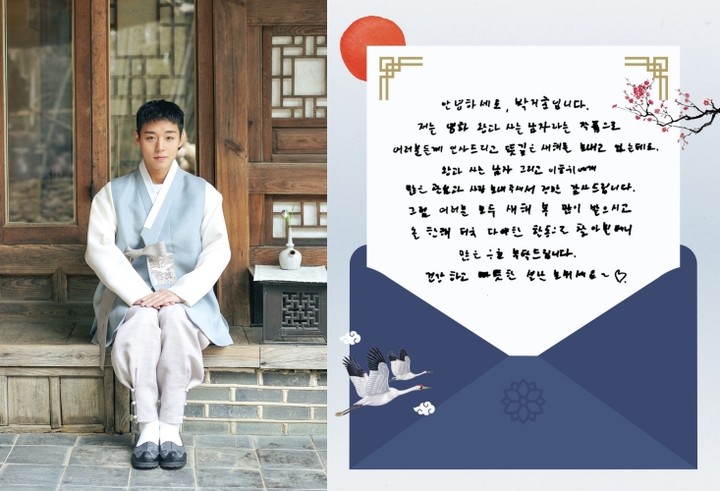 안녕하세요, 박지훈입니다.
저는 영화 왕과 사는 남자라는 작품으로
여러분들께 인사드리고 뜻깊은 새해를 보내고 있는데요.
왕과 사는 남자 그리고 이홍위에게
많은 관심과 사랑 보내주셔서 진심 감사드립니다.
그럼 여러분 모두 새해 복 많이 받으시고
올 한해 더욱 다양한 활동으로 찾아뵐테니
많은 응원 부탁드립니다.
건강하고 따뜻한 설날 보내세요~ ♡.